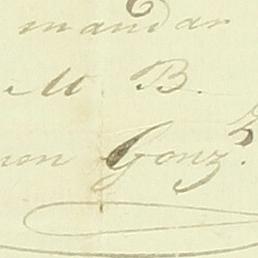 mandar
M B.
Gonz.